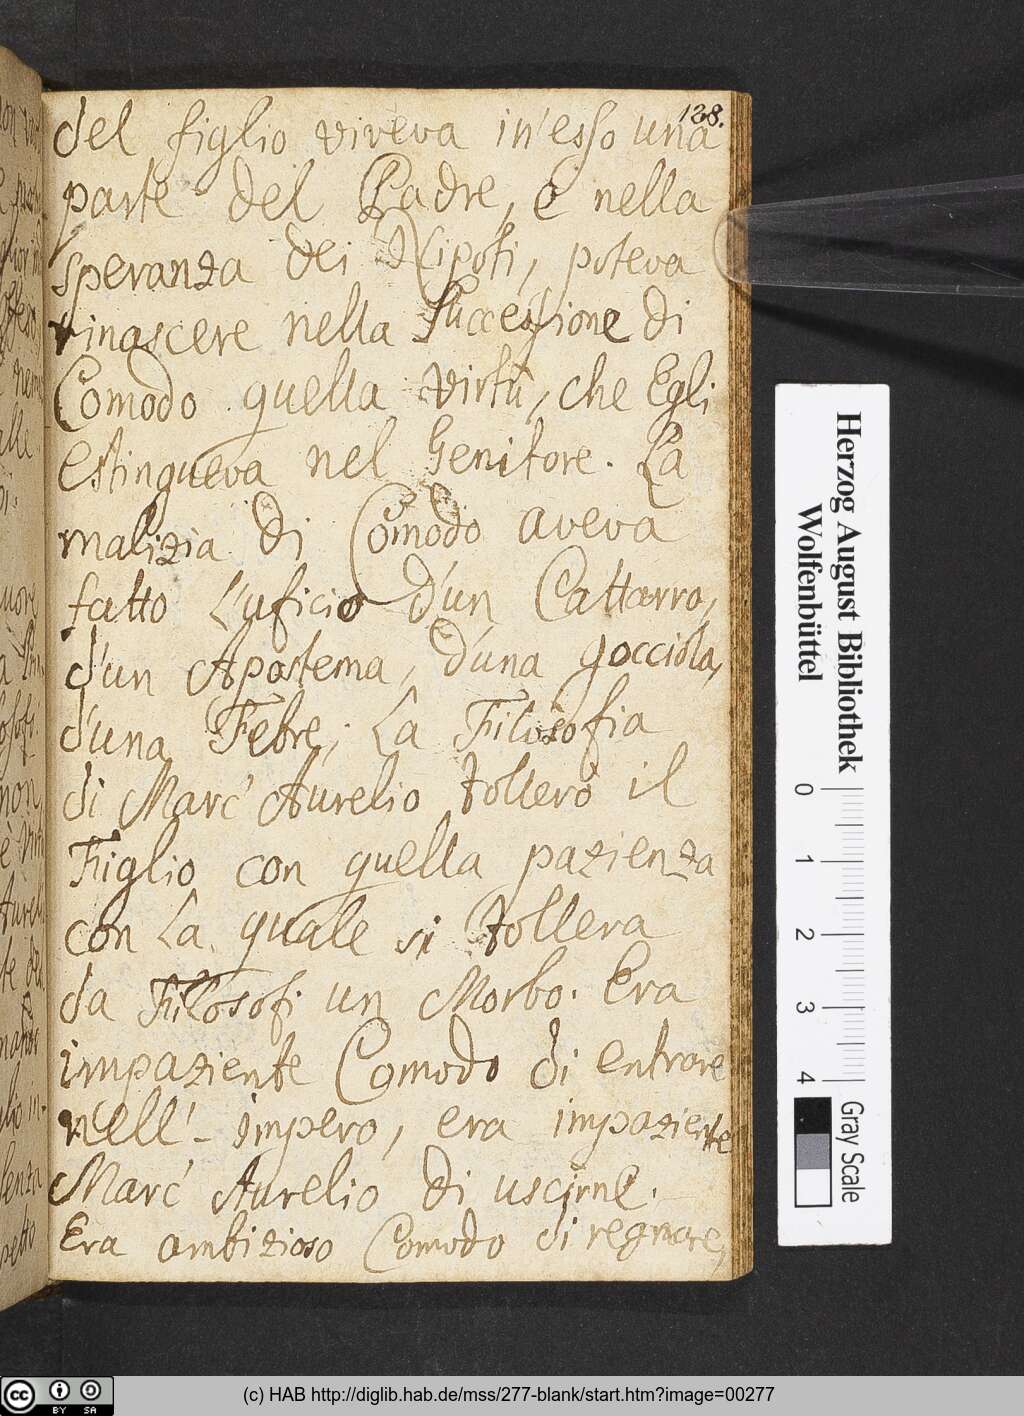 138.
del figlio viveva in'esso una
parte del Padre, e nella
speranza dei Nipoti, poteva
rinascere nella successione di
Comodo quella virtù, che Egli
estingueva nel Genitore. La
malizia di Comodo aveva
fatto l'uficio d'un Cattarro,
d'un Apostema, d'una gocciola,
d'una Febre; La Filosofia
di Marc' Aurelio tollerò il
Figlio con quella pazienza
con la quale si tollera
da Filosofi un Morbo. Era
impaziente Comodo di entrare
nell'- impero, era impaziente
Marc' Aurelio di uscirne.
Era ambizioso Comodo di regnare,
Herzog August Bibliothek
Wolfenbüttel
0 1 2 3 4
Gray Scale
cc BY SA
(c) HAB http://diglib.hab.de/mss/277-blank/start.htm?image=00277